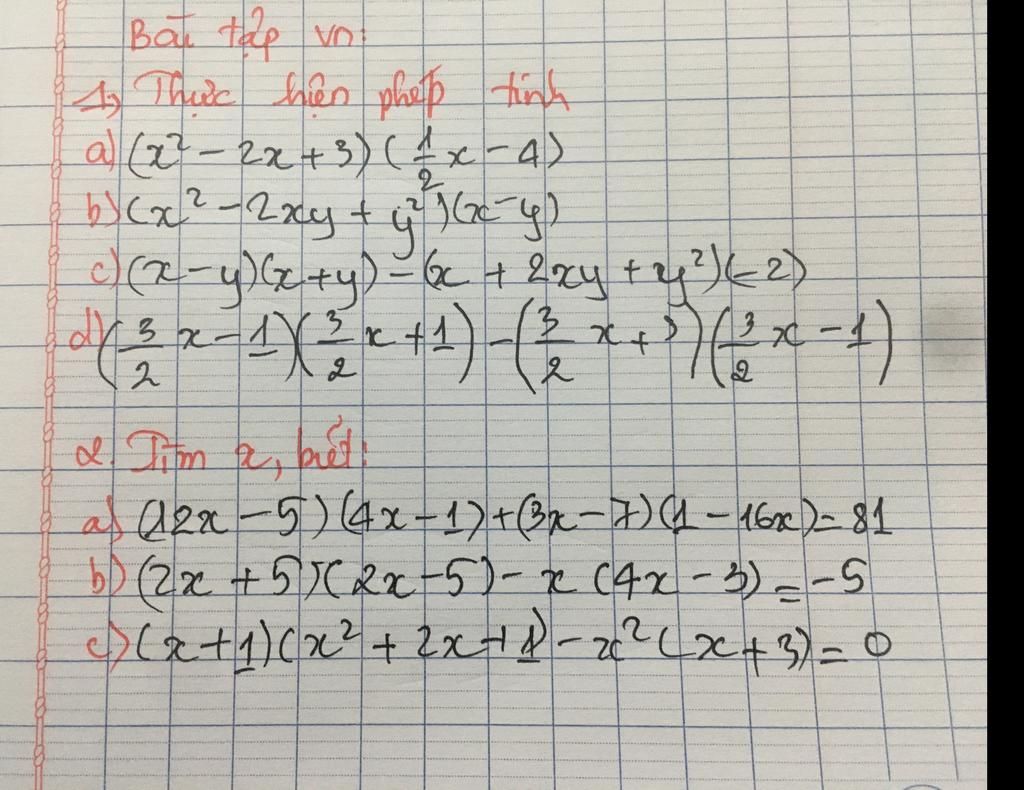 Bài tập vn:
1, Thực hiện phép tính
a) (x² - 2x + 3) (1/2 x - 4)
b) (x² - 2xy + y²)(x - y)
c) (x - y)(x + y) - (x + 2xy + y²)(-2)
d) (3/2 x - 1)(3/2 x + 1) - (3/2 x + 3)(3/2 x - 1)
2. Tìm x, biết:
a) (12x - 5)(4x - 1) + (3x - 7)(1 - 16x) = 81
b) (2x + 5)(2x - 5) - x (4x - 3) = -5
c) (x + 1)(x² + 2x + 1) - x² (x + 3) = 0